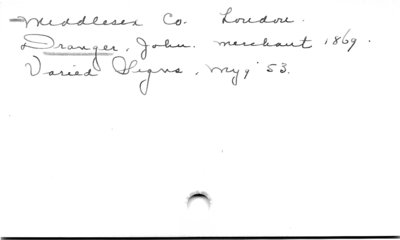 Middlesex Co. London.
Dranger, John. merchant 1869.
Varied Signs, My 9 '53.